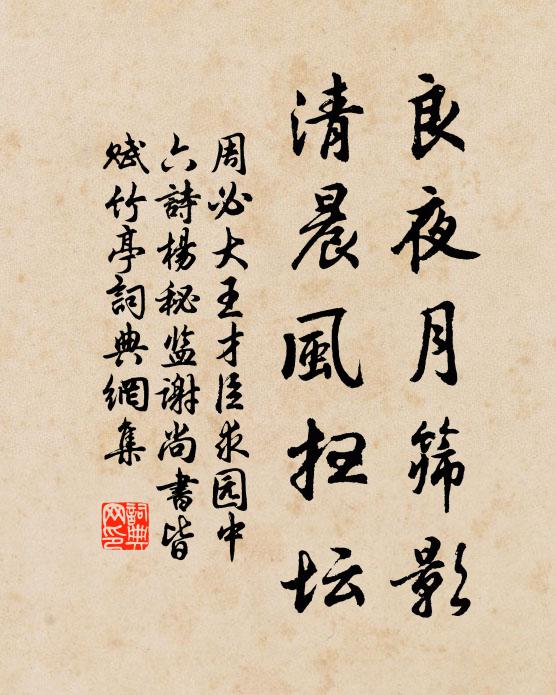 良夜月筛影
清晨風扫坛
周必大王才臣求园中
六詩楊秘监謝尚書皆
赋竹亭詞典網集
詞典网印